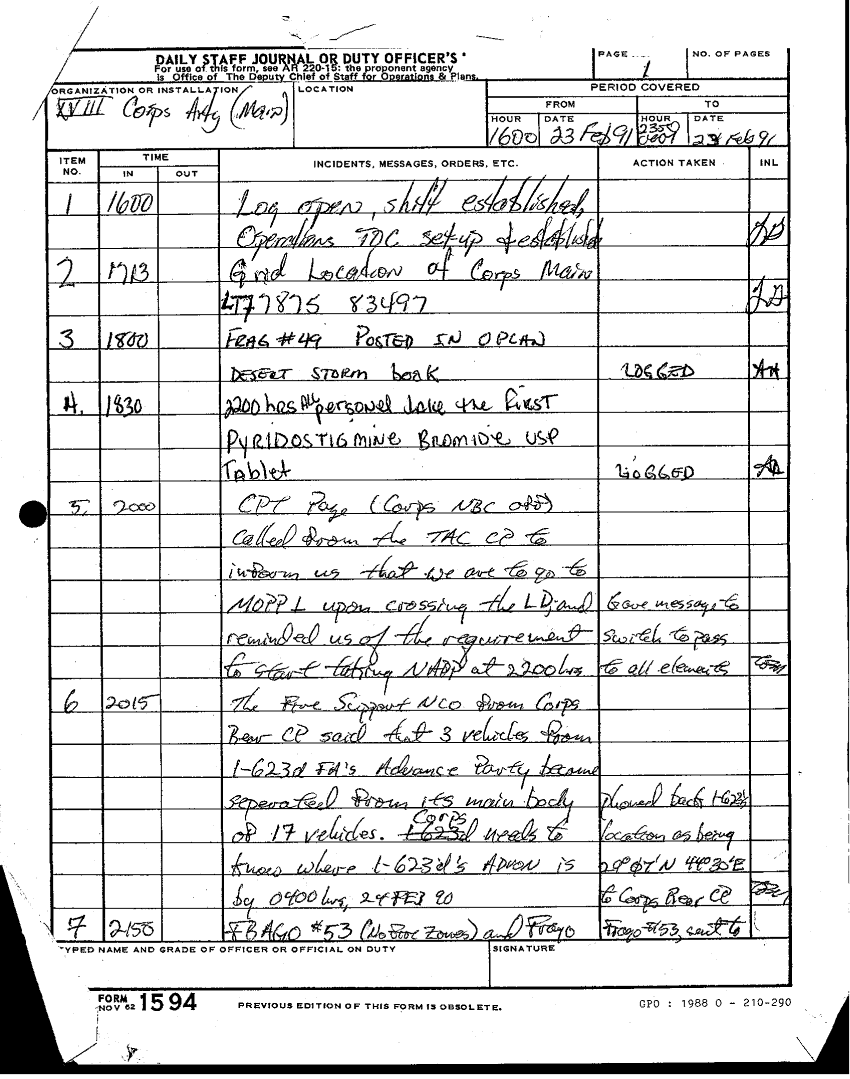 DAILY STAFF JOURNAL OR DUTY OFFICER'S
For use of this form, see AR 220-15: the proponent agency
is Office of The Deputy Chief of Staff for Operations & Plans.
PAGE
1
NO. OF PAGES
ORGANIZATION OR INSTALLATION
XVIII Corps Arty (Main)
LOCATION
PERIOD COVERED
FROM
TO
HOUR
1600
DATE
23 Feb 91
HOUR
2359
DATE
23 Feb 91
ITEM NO.
TIME
IN
OUT
INCIDENTS, MESSAGES, ORDERS, ETC.
ACTION TAKEN
INL
1 1600 Log open, shift established,
Operations TOC set-up & established
2 1713 Grid Location of Corps Main
LT77875 83497
3 1800 FRAG #49 POSTED IN OPLAN
DESERT STORM book LOGGED
4. 1830 2200 hrs All personel take the FIRST
PYRIDOSTIGMINE BROMIDE USP
Tablet LOGGED
5. 2000 CPT Page (Corps NBC off)
called from the TAC CP to
inform us that we are to go to
MOPP 1 upon crossing the LD; and Gave message to
reminded us of the requirement switch to pass
to start taking NAPP at 2200 hrs to all elements
6 2015 The Fire Support NCO from Corps
Rear CP said that 3 vehicles from
1-623d FA's Advance Party became
seperated from its main body phoned back 1-623d's
of 17 vehicles. 1-623d Corps needs to location as being
know where 1-623d's ADVON is 29°07'N 44°30'E
by 0400 hrs, 24 FEB 90 to Corps Rear CP
7 2150 FRAGO #53 (No Fire Zones) and Frago Frago #53, sent to
TYPED NAME AND GRADE OF OFFICER OR OFFICIAL ON DUTY
SIGNATURE
FORM
NOV 62 1594
PREVIOUS EDITION OF THIS FORM IS OBSOLETE.
GPO : 1988 O - 210-290